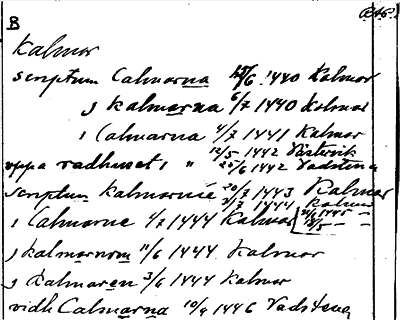 B
Kalmar
scriptum Calmarna 15/6 1440 Kalmar
j Kalmarna 6/7 1440 Kalmar
i Calmarna 4/7 1441 Kalmar
12/5 1442 Västervik
uppa radhuset i " 20/6 1442 Vadstena
scriptum Kalmarnie 20/7 1443 Kalmar
3/7 1444 Kalmar
i Calmarne 4/7 1444 Kalmar
j Kalmarnom 11/6 1444 Kalmar
j Kalmaren 3/6 1444 Kalmar
vidh Calmarna 10/9 1446 Vadstena